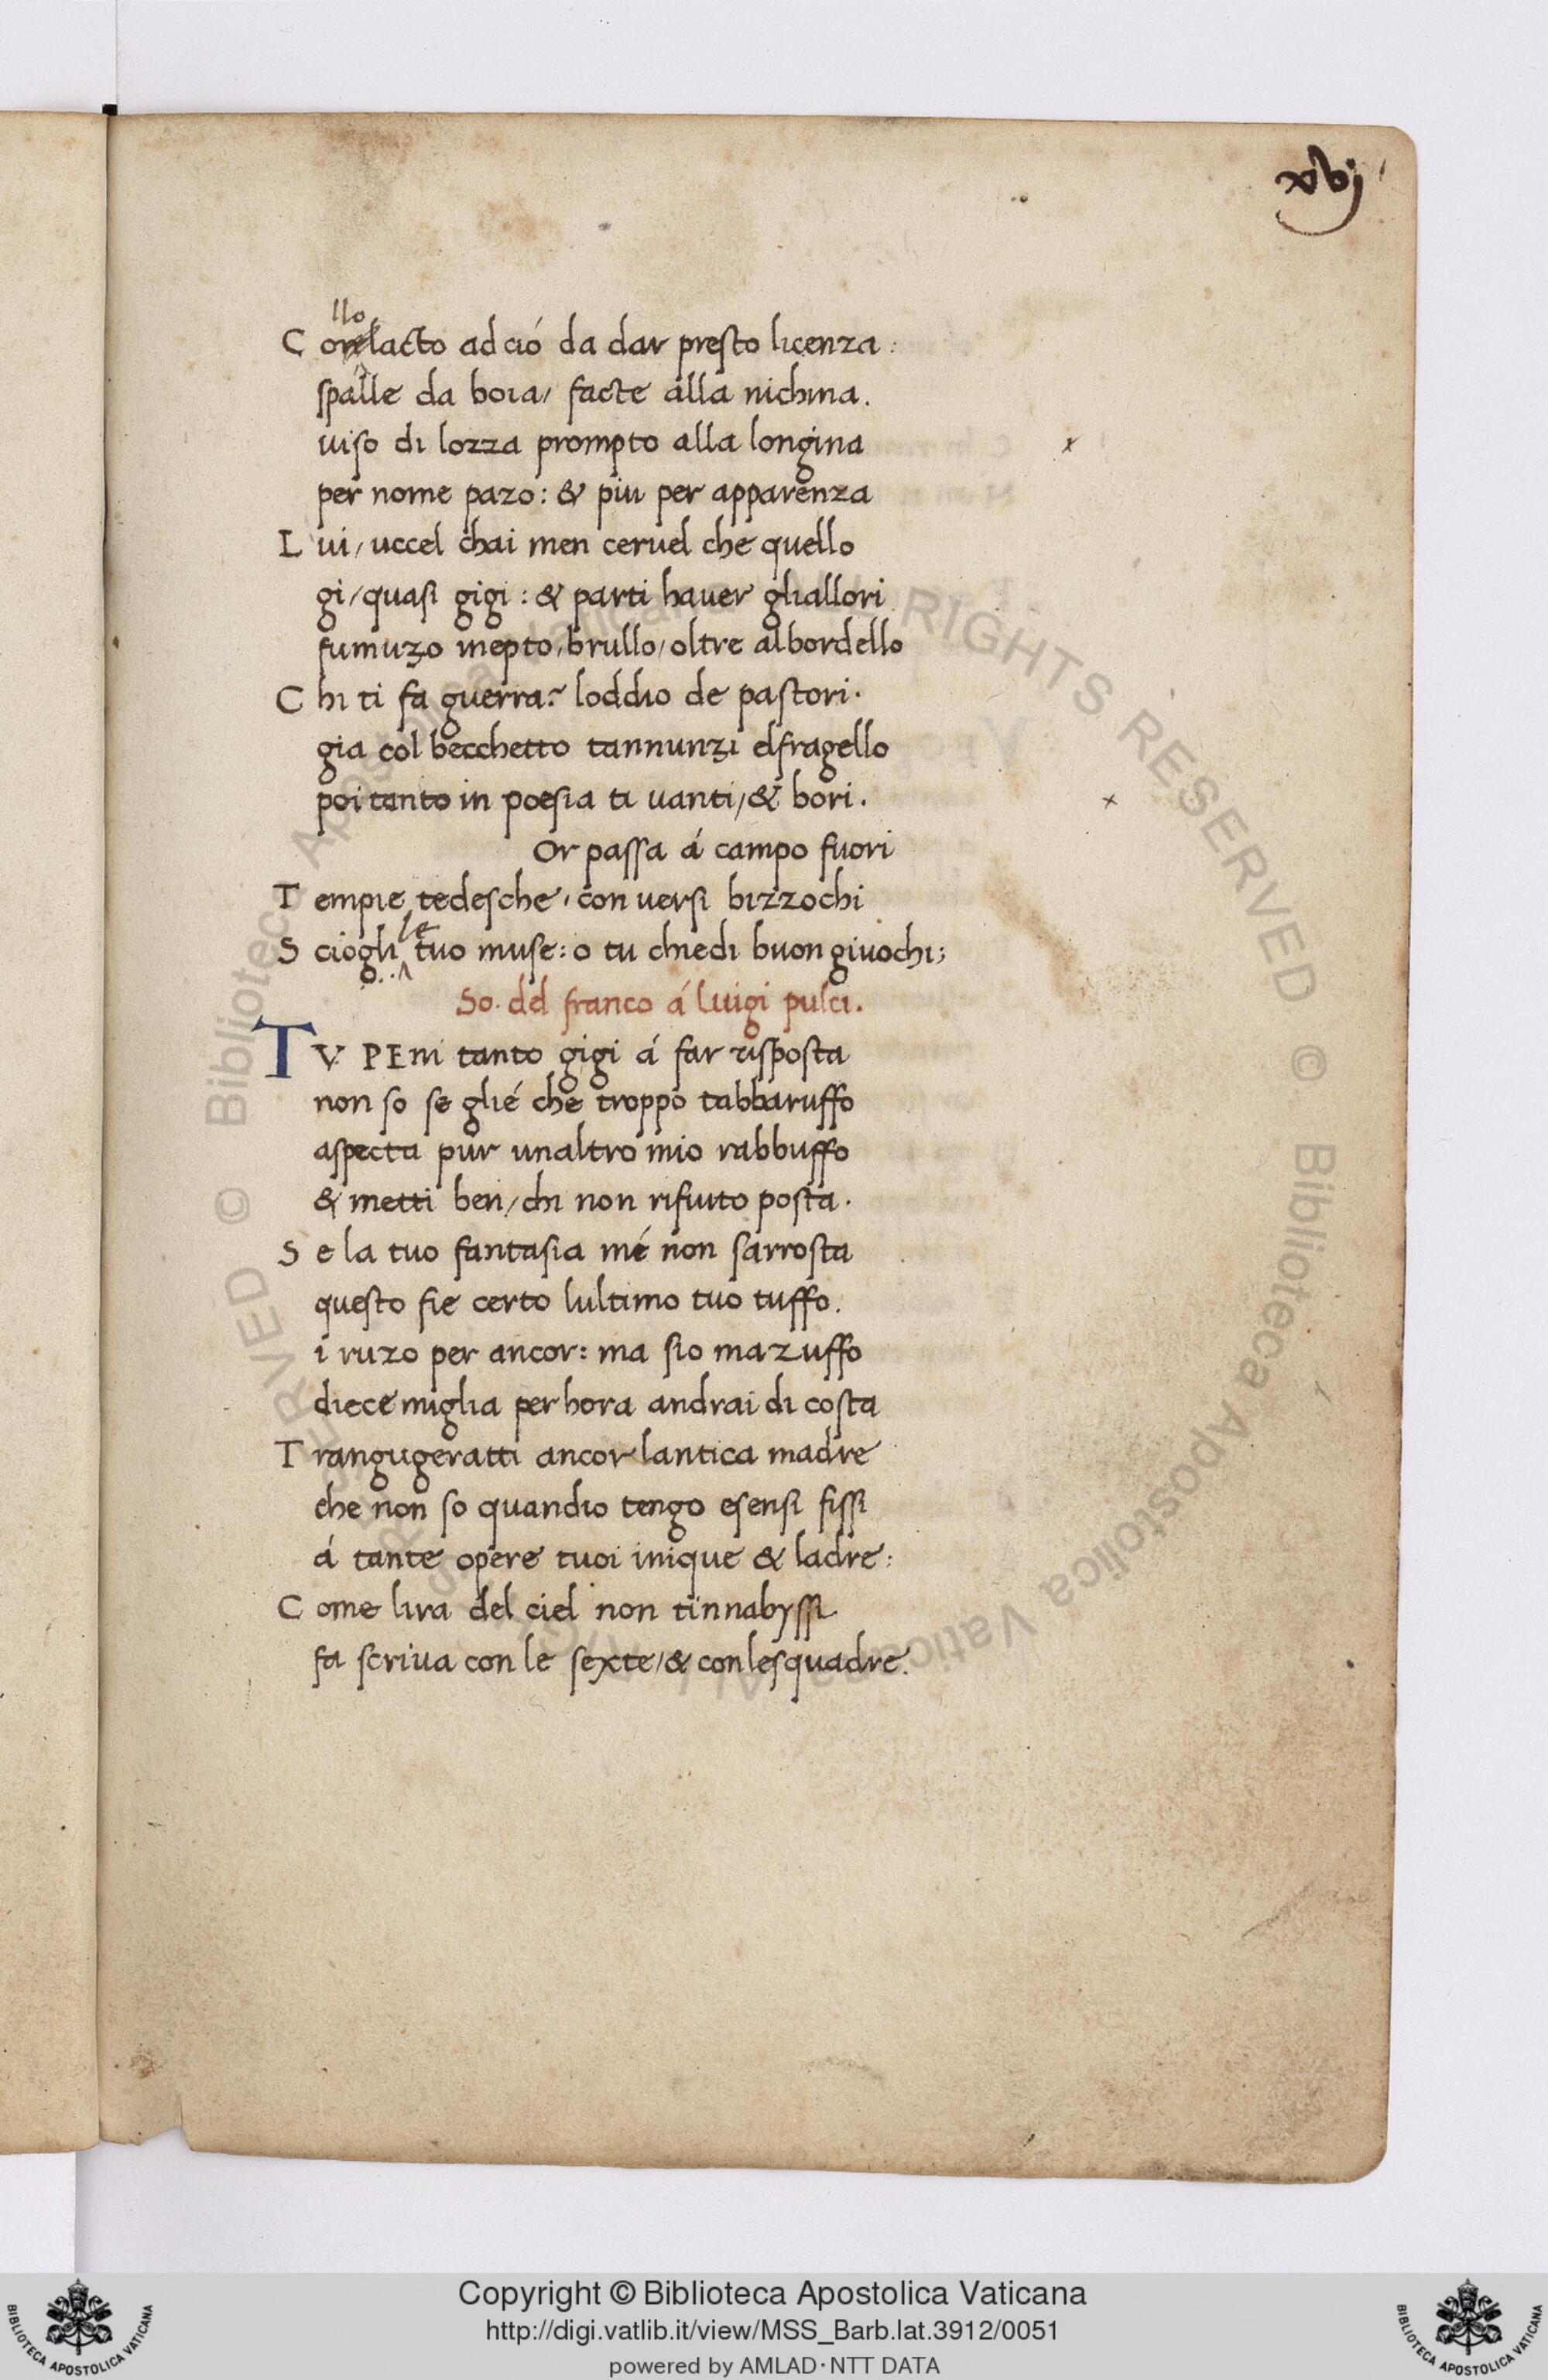 xvij
llo
C on lacto ad ció da dar presto licenza:
spalle da boia/ facte alla nichina.
uiso di lozza prompto alla longina
per nome pazo: & piu per apparenza
L ui/uccel chai men ceruel che quello
gi/quasi gigi: & parti hauer gliallori
fumuzo inepto/brullo/oltre albordello
C hi ti fa guerra? loddio de pastori.
gia col becchetto tannunzi elfragello
poi tanto in poesia ti uanti/& bori.
Or passa á campo fuori
T empie tedesche/con uersi bizzochi
le
S ciogli tuo muse: o tu chiedi buon giuochi;
So. dd franco á luigi pulci.
TV PEni tanto gigi á far risposta
non so se glié che troppo tabbaruffo
aspecta pur unaltro mio rabbuffo
& metti ben/chi non rifiuto posta.
S e la tuo fantasia mé non sarrosta
questo fie certo lultimo tuo tuffo.
i ruzo per ancor: ma sio mazuffo
diece miglia per hora andrai di costa
T rangugeratti ancor lantica madre
che non so quandio tengo esensi fissi
á tante opere tuoi inique & ladre:
C ome lira del ciel non tinnabyssi
fa scriua con le sexte/& con lesquadre.
Copyright © Biblioteca Apostolica Vaticana
http://digi.vatlib.it/view/MSS_Barb.lat.3912/0051
powered by AMLAD·NTT DATA